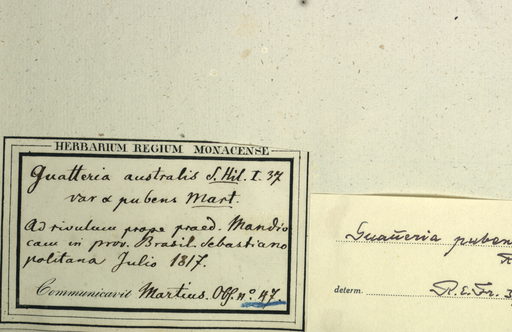 HERBARIUM REGIUM MONACENSE
Guatteria australis S. Hil. I. 37
var α pubens Mart.
Ad rivulum prope praed. Mandio
cam in prov. Brasil. Sebastiano
politana Julio 1817.
Communicavit Martius. Obs. nº 47.
Guatteria puben
R
determ. R.E. Fr. 3